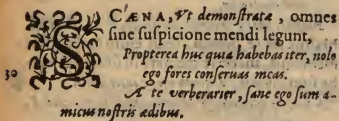 SCÆNA, Vt demonſtratæ, omnes
ſine ſuſpicione mendi legunt,
Propterea huc quia habebas iter, nolo
30 ego fores conſeruas meas.
A te verberarier, ſane ego ſum a-
micus noſtris ædibus.